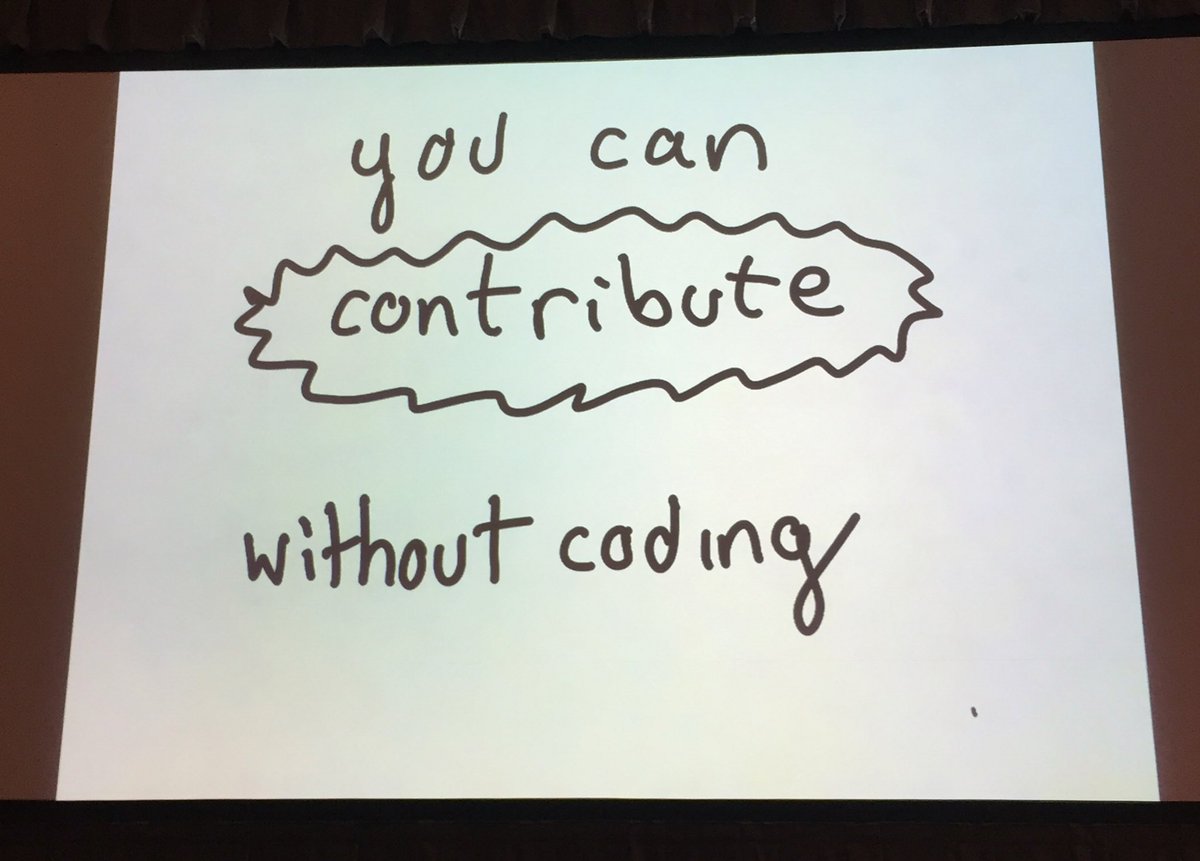 you can
contribute
without coding